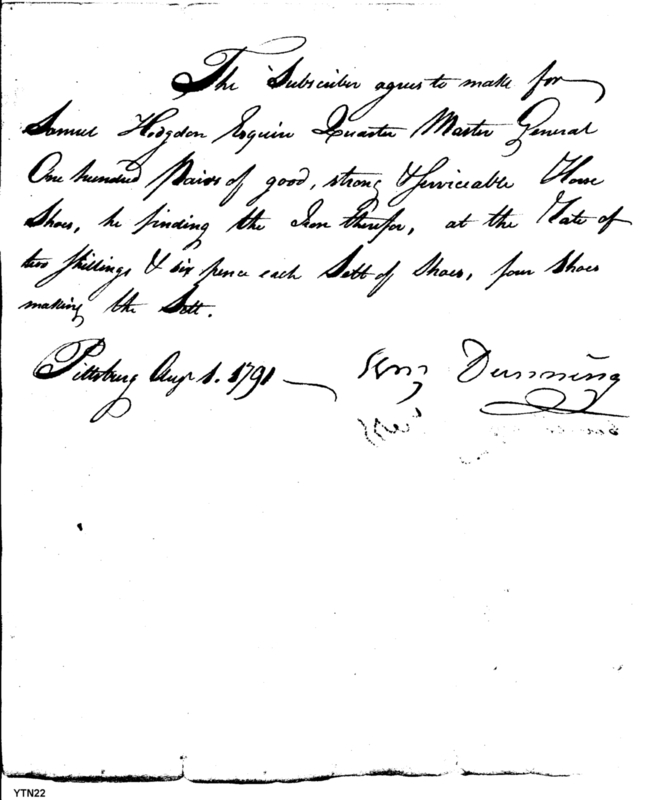 The Subscriber agrees to make for
Samuel Hodgdon Esquire Quarter Master General
One hundred Pairs of good, strong & Serviceable Horse
Shoes, he finding the Iron therefor, at the Rate of
two Shillings & six pence each Sett of Shoes, four Shoes
making the Sett.
Pittsburg Augt 1. 1791 Wm Dunning
YTN22